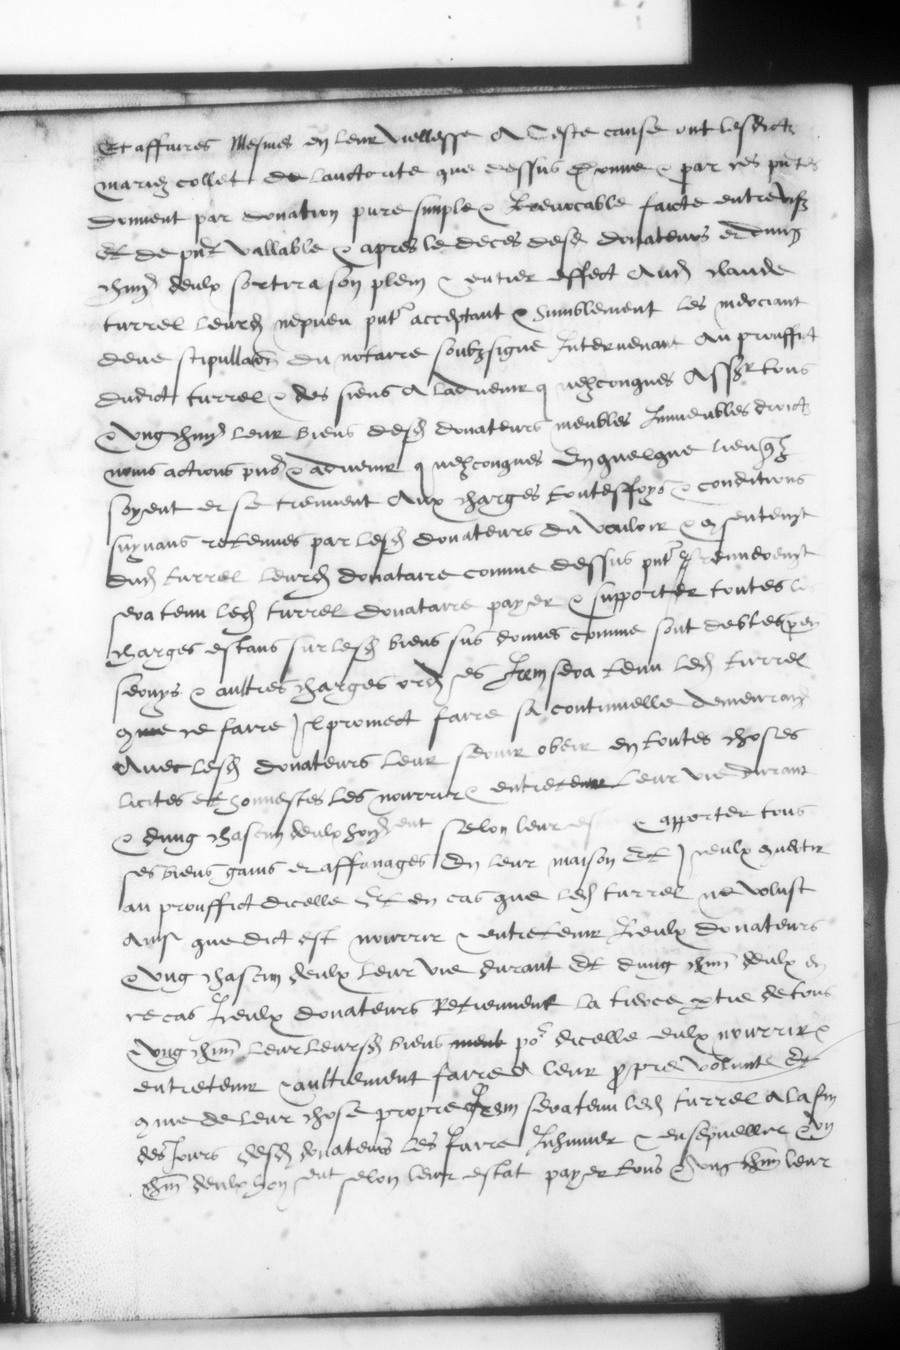 Et affaires Mesmes en leur viellesse A Ceste cause ont lesdictz
mariez collet de lauctorite que dessus Donne & par ces pntes
donnent par donation pure simple & Irrevocable faicte entre vifz
et de pnt vallable & apres le deces desd donateurs et dung
chun deulx sortira son plein & entier effect Aud claude
turrel leurd nepveu pnt acceptant & humblement les merciant
deue stipullaon du notaire soubzsigne Intervenant Au prouffit
dudict turrel & des siens A ladvenir quelzconques Assr tous
& Ung chun leur biens desd donateurs meubles Immeubles droictz
noms actions pns & advenir quelzconques En quelque lieu qz
soyent et se treuvent Aux charges toutesffoys & conditions
suyvans retenues par lesd donateurs du vouloir & consentemt
dud turrel leurd donataire comme dessus pnt
sera tenu led turrel donataire payer & supporter toutes
charges estans sur lesd biens sus donnes comme sont debtes
servys & aultres charges ord es Item sera tenu led turrel
comme ce faire Il promect faire sa continuelle demeurance
Avec lesd donateurs leur servir obeir en toutes choses
licites et honnestes les nourrir & entretenir leur vie durant
& dung chascun deulx selon leur & apporter tous
ses biens gains et affanages En leur maison Et Iceulx
au prouffict dicelle Et en cas que led turrel ne volust
Ainsi que dict est nourrir & entretenir Iceulx donateurs
& Ung chascun deulx leur vie durant Et dung chun deulx en
ce cas Iceulx donateurs Retiennent la tierce ptie de tous
& Ung chun leur leursd biens po dicelle eulx nourrir &
entretenir & aultrement faire A leur propre volunte Et
comme de leur chose propre Item sera tenu led turrel A la fin
des Jours desd donateurs les faire Inhumer & ensepvellir & Ung
chun deulx selon leur estat payer tous & Ung chun leur